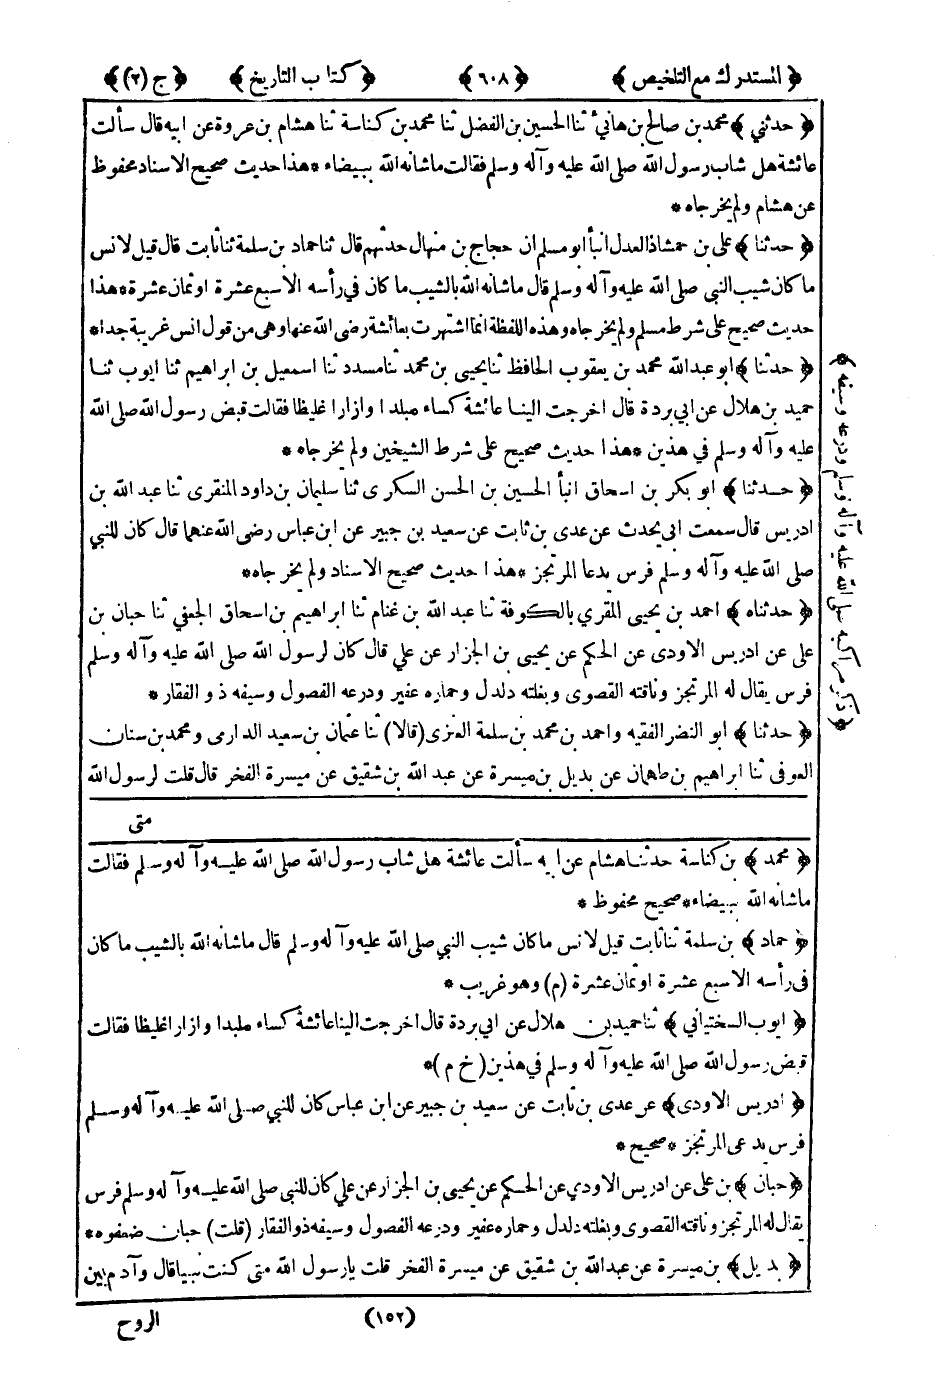 ﴿ المستدرك مع التلخيص ﴾ ﴿ ٦٠٨ ﴾ ﴿ كتاب التاريخ ﴾ ﴿ ج (٢) ﴾
﴿ حدثني ﴾ محمد بن صالح بن هانئ ثنا الحسين بن الفضل ثنا محمد بن كناسة ثنا هشام بن عروة عن ابيه قال سألت
عائشة هل شاب رسول الله صلى الله عليه وآله وسلم فقالت ماشانه الله ببيضاء * هذا حديث صحيح الاسناد محفوظ
عن هشام ولم يخرجاه *
﴿ حدثنا ﴾ على بن حمشاذ العدل انبأ ابو مسلم ان حجاج بن منهال حدثهم قال ثنا حماد بن سلمة ثنا ثابت قال قيل لانس
ما كان شيب النبي صلى الله عليه وآله وسلم قال ماشانه الله بالشيب ما كان في رأسه الاسبع عشرة او ثمان عشرة * هذا
حديث صحيح على شرط مسلم ولم يخرجاه وهذه اللفظة انما اشتهرت بعائشة رضى الله عنها وهى من قول انس غريبة جدا *
﴿ حدثنا ﴾ ابو عبدالله محمد بن يعقوب الحافظ ثنا يحيى بن محمد ثنا مسدد ثنا اسمعيل بن ابراهيم ثنا ايوب ثنا
حميد بن هلال عن ابي بردة قال اخرجت الينا عائشة كساء مبلدا وازارا غليظا فقالت قبض رسول الله صلى الله
عليه وآله وسلم في هذين * هذا حديث صحيح على شرط الشيخين ولم يخرجاه *
﴿ حدثنا ﴾ ابو بكر بن اسحاق انبأ الحسين بن الحسن السكرى ثنا سليمان بن داود المنقرى ثنا عبد الله بن
ادريس قال سمعت ابى يحدث عن عدى بن ثابت عن سعيد بن جبير عن ابن عباس رضى الله عنهما قال كان للنبي
صلى الله عليه وآله وسلم فرس يدعا المرتجز * هذا حديث صحيح الاسناد ولم يخرجاه *
﴿ حدثناه ﴾ احمد بن يحيى المقري بالكوفة ثنا عبد الله بن غنام ثنا ابراهيم بن اسحاق الجعفي ثنا حبان بن
على عن ادريس الاودى عن الحكم عن يحيى بن الجزار عن علي قال كان لرسول الله صلى الله عليه وآله وسلم
فرس يقال له المرتجز وناقته القصوى وبغلته دلدل وحماره عفير ودرعه الفصول وسيفه ذو الفقار *
﴿ حدثنا ﴾ ابو النضر الفقيه واحمد بن محمد بن سلمة العنزى (قالا) ثنا عثمان بن سعيد الدارمى ومحمد بن سنان
العوفى ثنا ابراهيم بن طهمان عن بديل بن ميسرة عن عبد الله بن شقيق عن ميسرة الفخر قال قلت لرسول الله
متى
﴿ ذكر مراكبه صلى الله عليه وآله وسلم ودرعه وسيفه ﴾
﴿ محمد ﴾ بن كناسة حدثنا هشام عن ابيه سألت عائشة هل شاب رسول الله صلى الله عليه وآله وسلم فقالت
ماشانه الله ببيضاء * صحيح محفوظ *
﴿ حماد ﴾ بن سلمة ثنا ثابت قيل لانس ما كان شيب النبي صلى الله عليه وآله وسلم قال ماشانه الله بالشيب ما كان
فى رأسه الاسبع عشرة او ثمان عشرة (م) وهو غريب *
﴿ ايوب السختياني ﴾ ثنا حميد بن هلال عن ابي بردة قال اخرجت الينا عائشة كساء ملبدا وازارا غليظا فقالت
قبض رسول الله صلى الله عليه وآله وسلم في هذين (خ م) *
﴿ ادريس الاودى ﴾ عن عدى بن ثابت عن سعيد بن جبير عن ابن عباس كان للنبي صلى الله عليه وآله وسلم
فرس يدعى المرتجز * صحيح *
﴿ حبان ﴾ بن على عن ادريس الاودي عن الحكم عن يحيى بن الجزار عن علي كان للنبى صلى الله عليه وآله وسلم فرس
يقال له المرتجز وناقته القصوى وبغلته دلدل وحماره عفير ودرعه الفصول وسيفه ذو الفقار (قلت) حبان ضعفوه *
﴿ بديل ﴾ بن ميسرة عن عبدالله بن شقيق عن ميسرة الفخر قلت يارسول الله متى كنت نبيا قال وآدم بين
(١٥٢) الروح